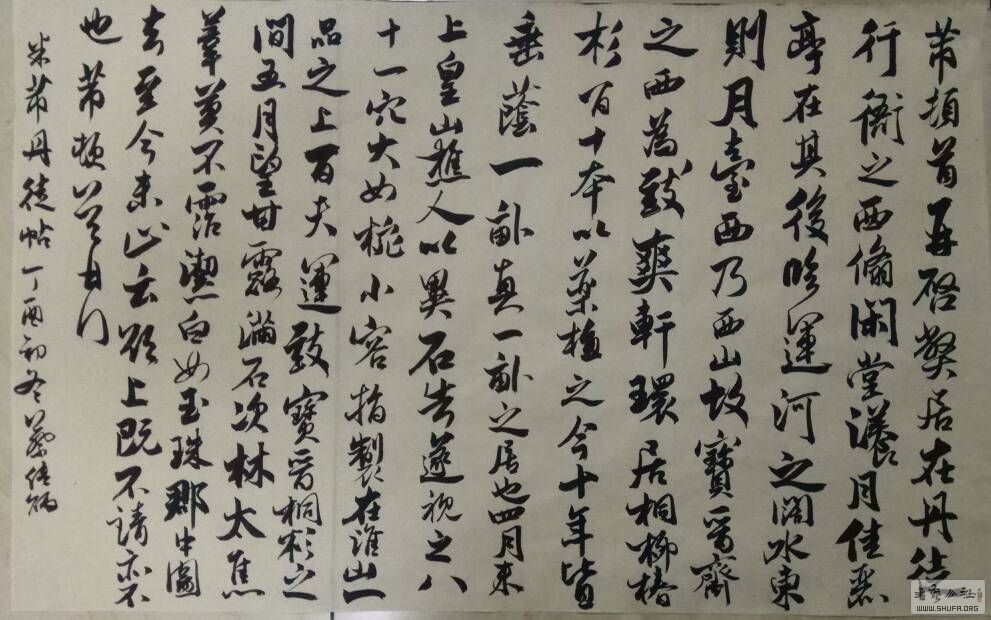 芾頓首再啓弊居在丹徒
行衙之西翛閑堂漾月佳麗
亭在其後臨運河之闊水東
則月臺西乃西山故寶晉齋
之西為致爽軒環居桐柳椿
杉百十本以藥植之今十年皆
垂蔭一畝真一畝之居也四月末
上皇山樵人以異石告遂視之八
十一穴大如椀小容指製在淮山一
品之上百夫運致寶晉桐杉之
間五月望甘露滿石次林太焦
葦莫不霑潔白如玉珠郡中圖
去至今未止云欲上既不請亦不
也芾頓首
米芾丹徒帖丁酉初冬
WWW.SHUFA.ORG